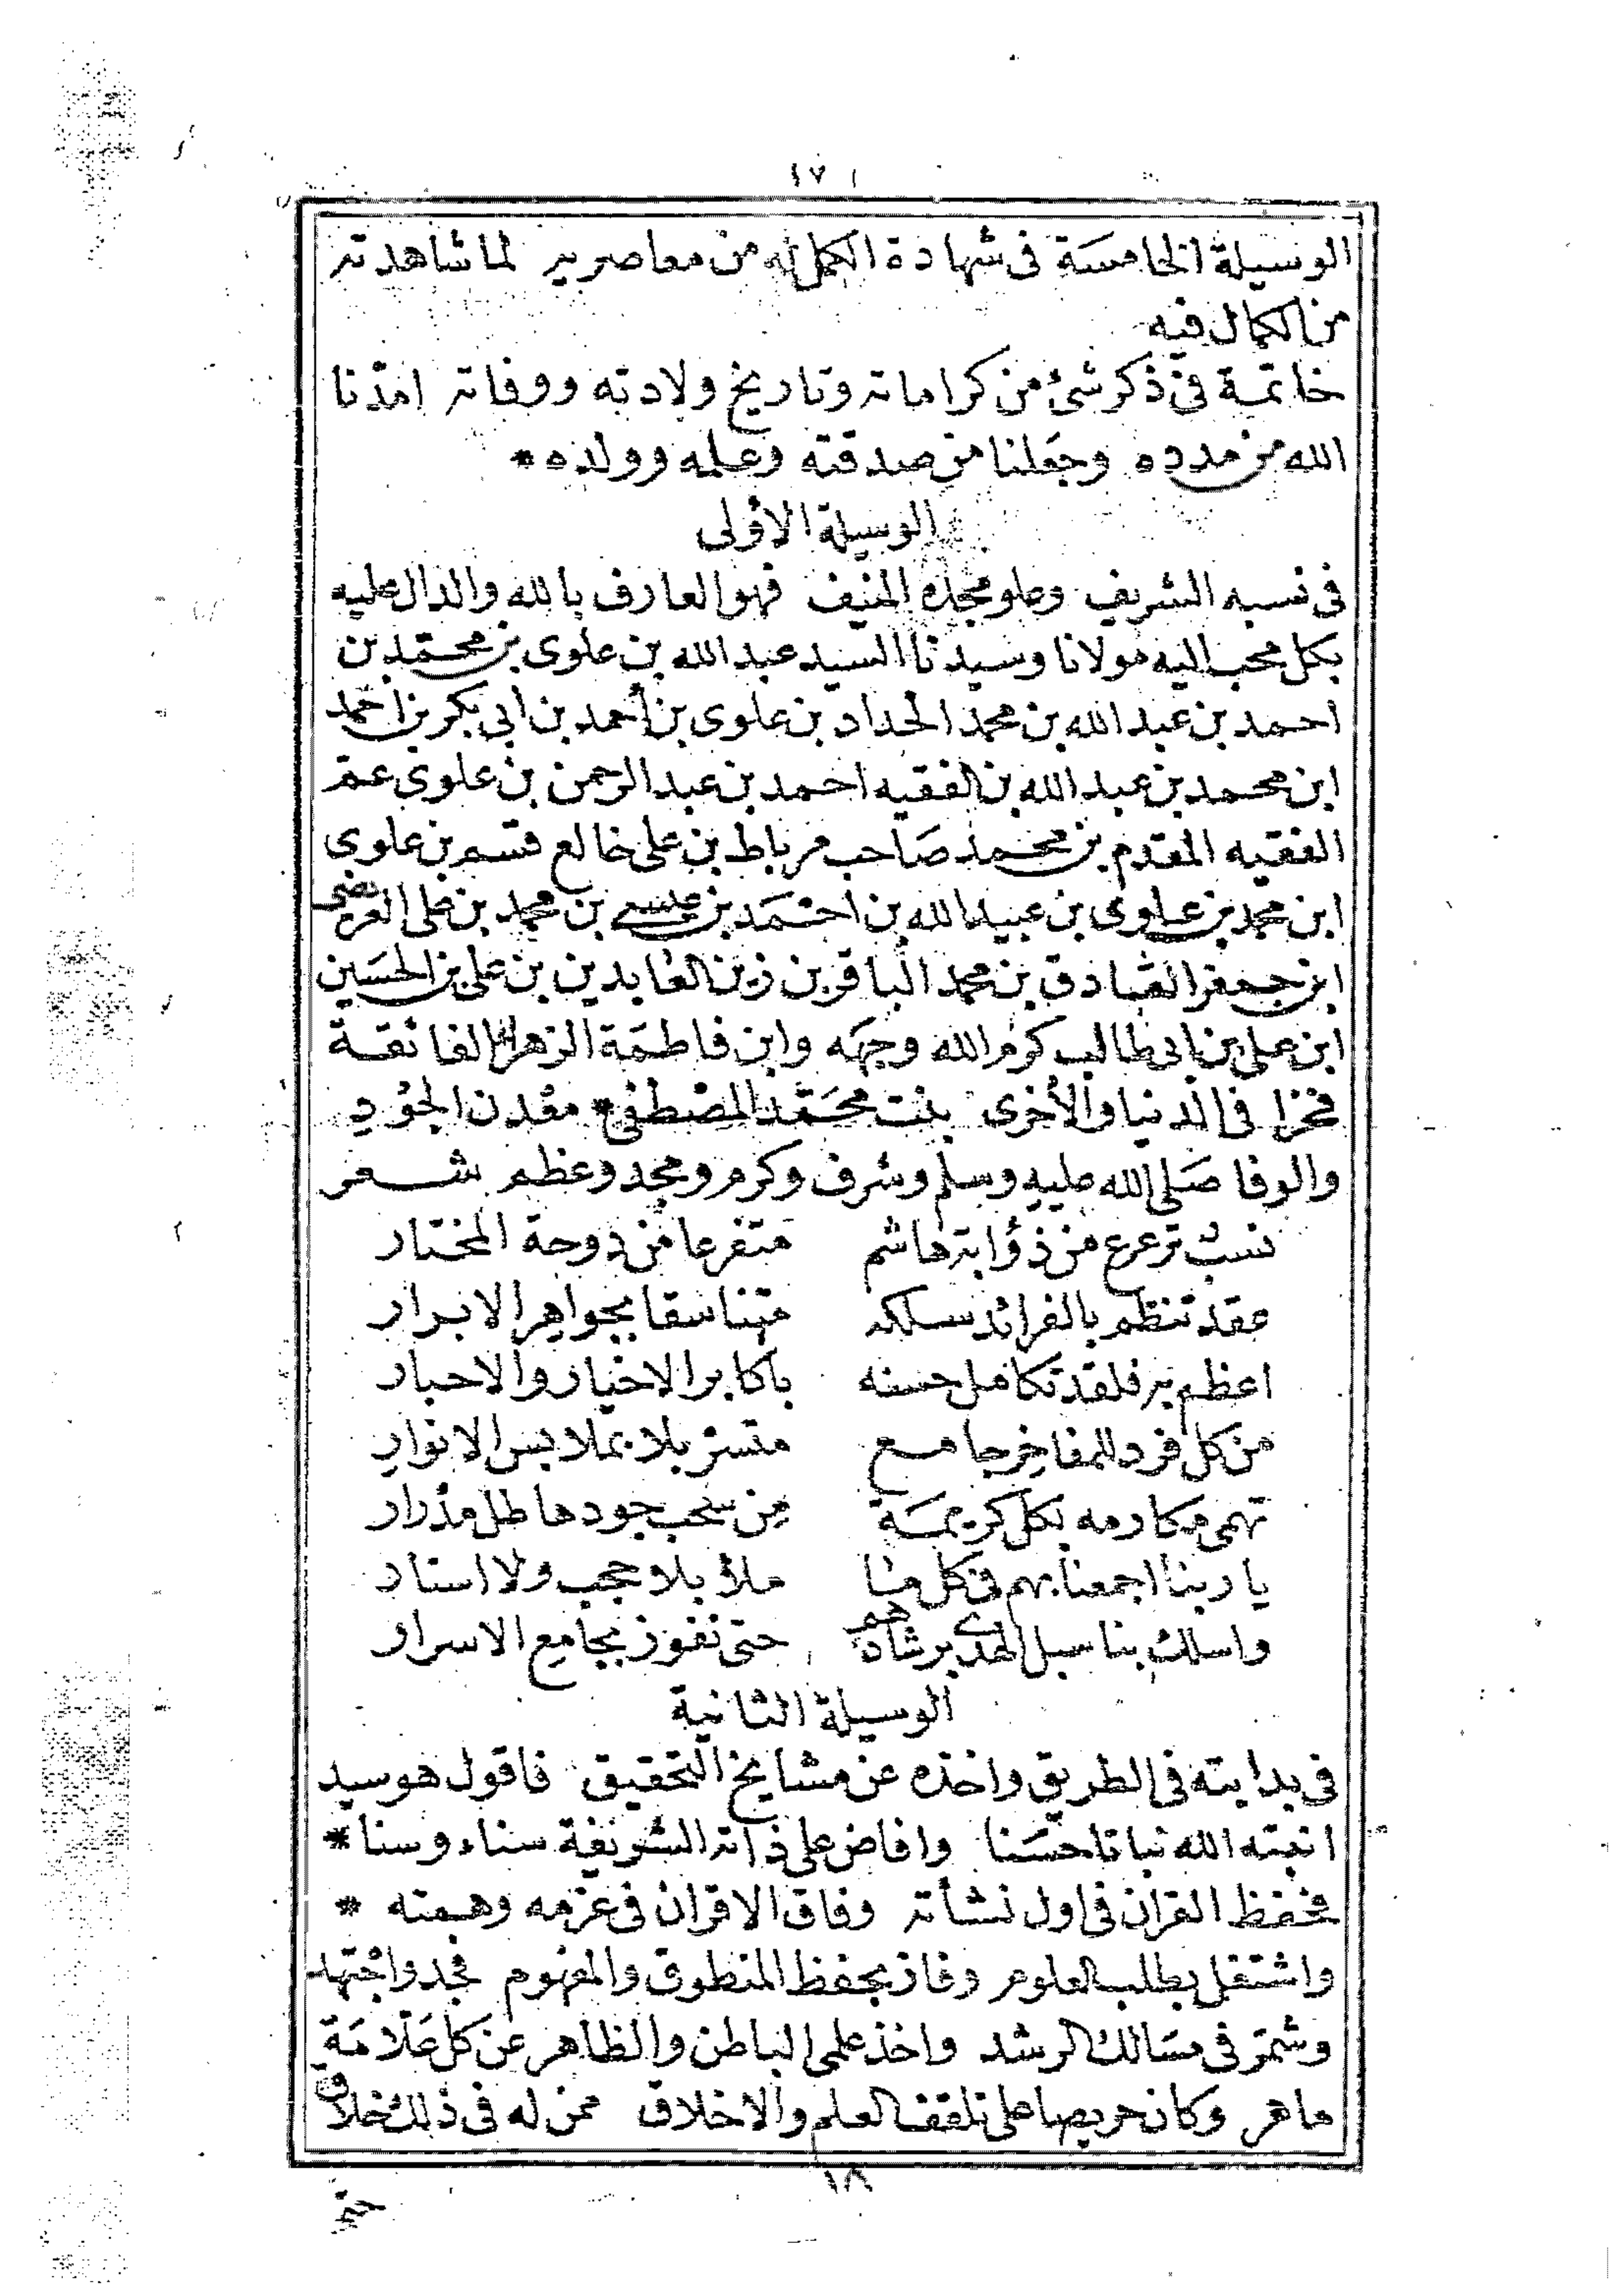 ١٧١
الوسيلة الخامسة فى شهادة الكمل له من معاصريه لما شاهدته
من الكمال فيه
خاتمة فى ذكر شئ من كراماته وتاريخ ولادته ووفاته امدّنا
الله من مدده وجعلنا من صدقته وعلمه وولده *
الوسيلة الاولى
فى نسبه الشريف وعلو مجده المنيف فهو العارف بالله والدال عليه
بكل محب اليه مولانا وسيدنا السيد عبد الله بن علوى بن محمّد بن
احمد بن عبد الله بن محمد الحداد بن علوى بن أحمد بن ابى بكر بن احمد
ابن محمد بن عبد الله بن الفقيه احمد بن عبد الرحمن بن علوى عمّ
الفقيه المقدم بن محمد صَاحب مرباط بن على خالع قسم بن علوى
ابن محمد بن علوى بن عبيد الله بن احمَد بن عيسى بن محمد بن على العريضى
ابن جعفر الصّادق بن محمد الباقر بن زين العابدين بن على بن الحسَين
ابن على بن ابى طالب كرم الله وجهَه وابن فاطمَة الزهراء الفائقة
فخرًا فى الدنيا والأخرى بنت محَمّد المصْطفى * معْدن الجوُد
والوفا صَلى الله عليه وسلم وشرف وكرم ومجد وعظم شعر
نسبٌ ترعرع من ذؤابة هاشم متفرعا من دوحة المختار
عقد تنظم بالفرائد سلكه متناسقا بجواهر الابرار
اعظم به فلقد تكامل حسنه باكابر الاخيار والاحبار
من كل فرد للمفاخر جامع متسربلا بملابس الانوار
تهمى مكارمه بكل كريمَة مِن سحب جود هاطل مدْرار
يا ربنا اجمعنا بهم فى كل ملأ بلا حجب ولا استار
واسلك بنا سبل الهدى برشادهم حتى نفوز بجامع الاسرار
الوسيلة الثانية
فى بدايته فى الطريق واخذه عن مشايخ التحقيق فاقول هو سيد
انبته الله نباتا حسَنا وافاض على ذاته الشريفة سناء وسنا *
فحفظ القران فى اول نشأته وفاق الاقران فى عزمه وهمته *
واشتغل بطلب العلوم وفاز بحفظ المنطوق والمفهوم فجد واجتهد
وشمّر فى مسَالك الرشد واخذ علمى الباطن والظاهر عن كل عَلّامَةٍ
ماهر وكان حريصا على تلقف العلم والاخلاق ممن له فى ذلك خلاق
١٨
حتى